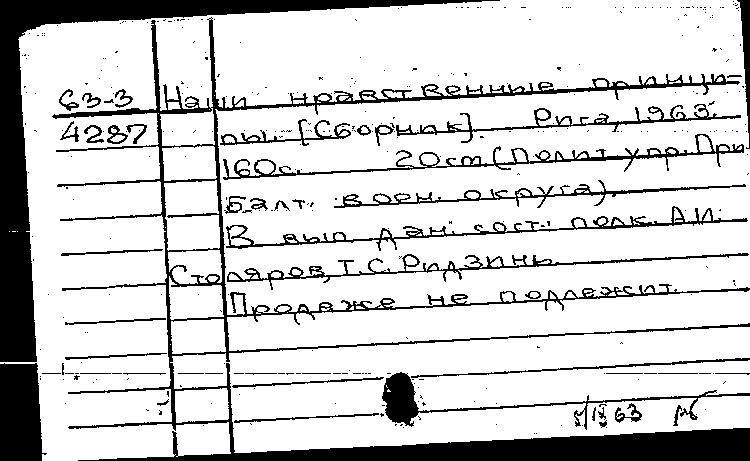 63-3 Наши нравственные принци-
4287 пы. [Сборник]. Рига, 1963.
160с. 20см. (Полит. упр. При
балт. воен. округа).
В вып. дан. сост.: полк. А.И.
Столяров, Т.С. Ридзинь.
Продаже не подлежит.
63